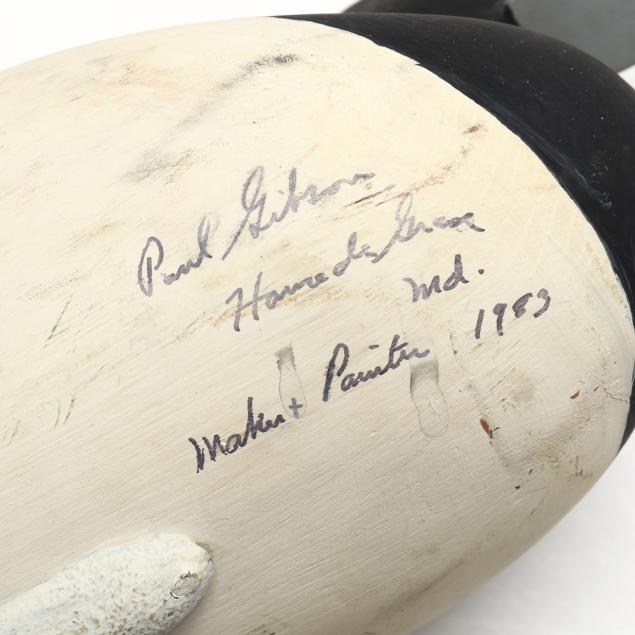 Paul Gibson
Havre de Grace
Md.
Maker + Painter 1983